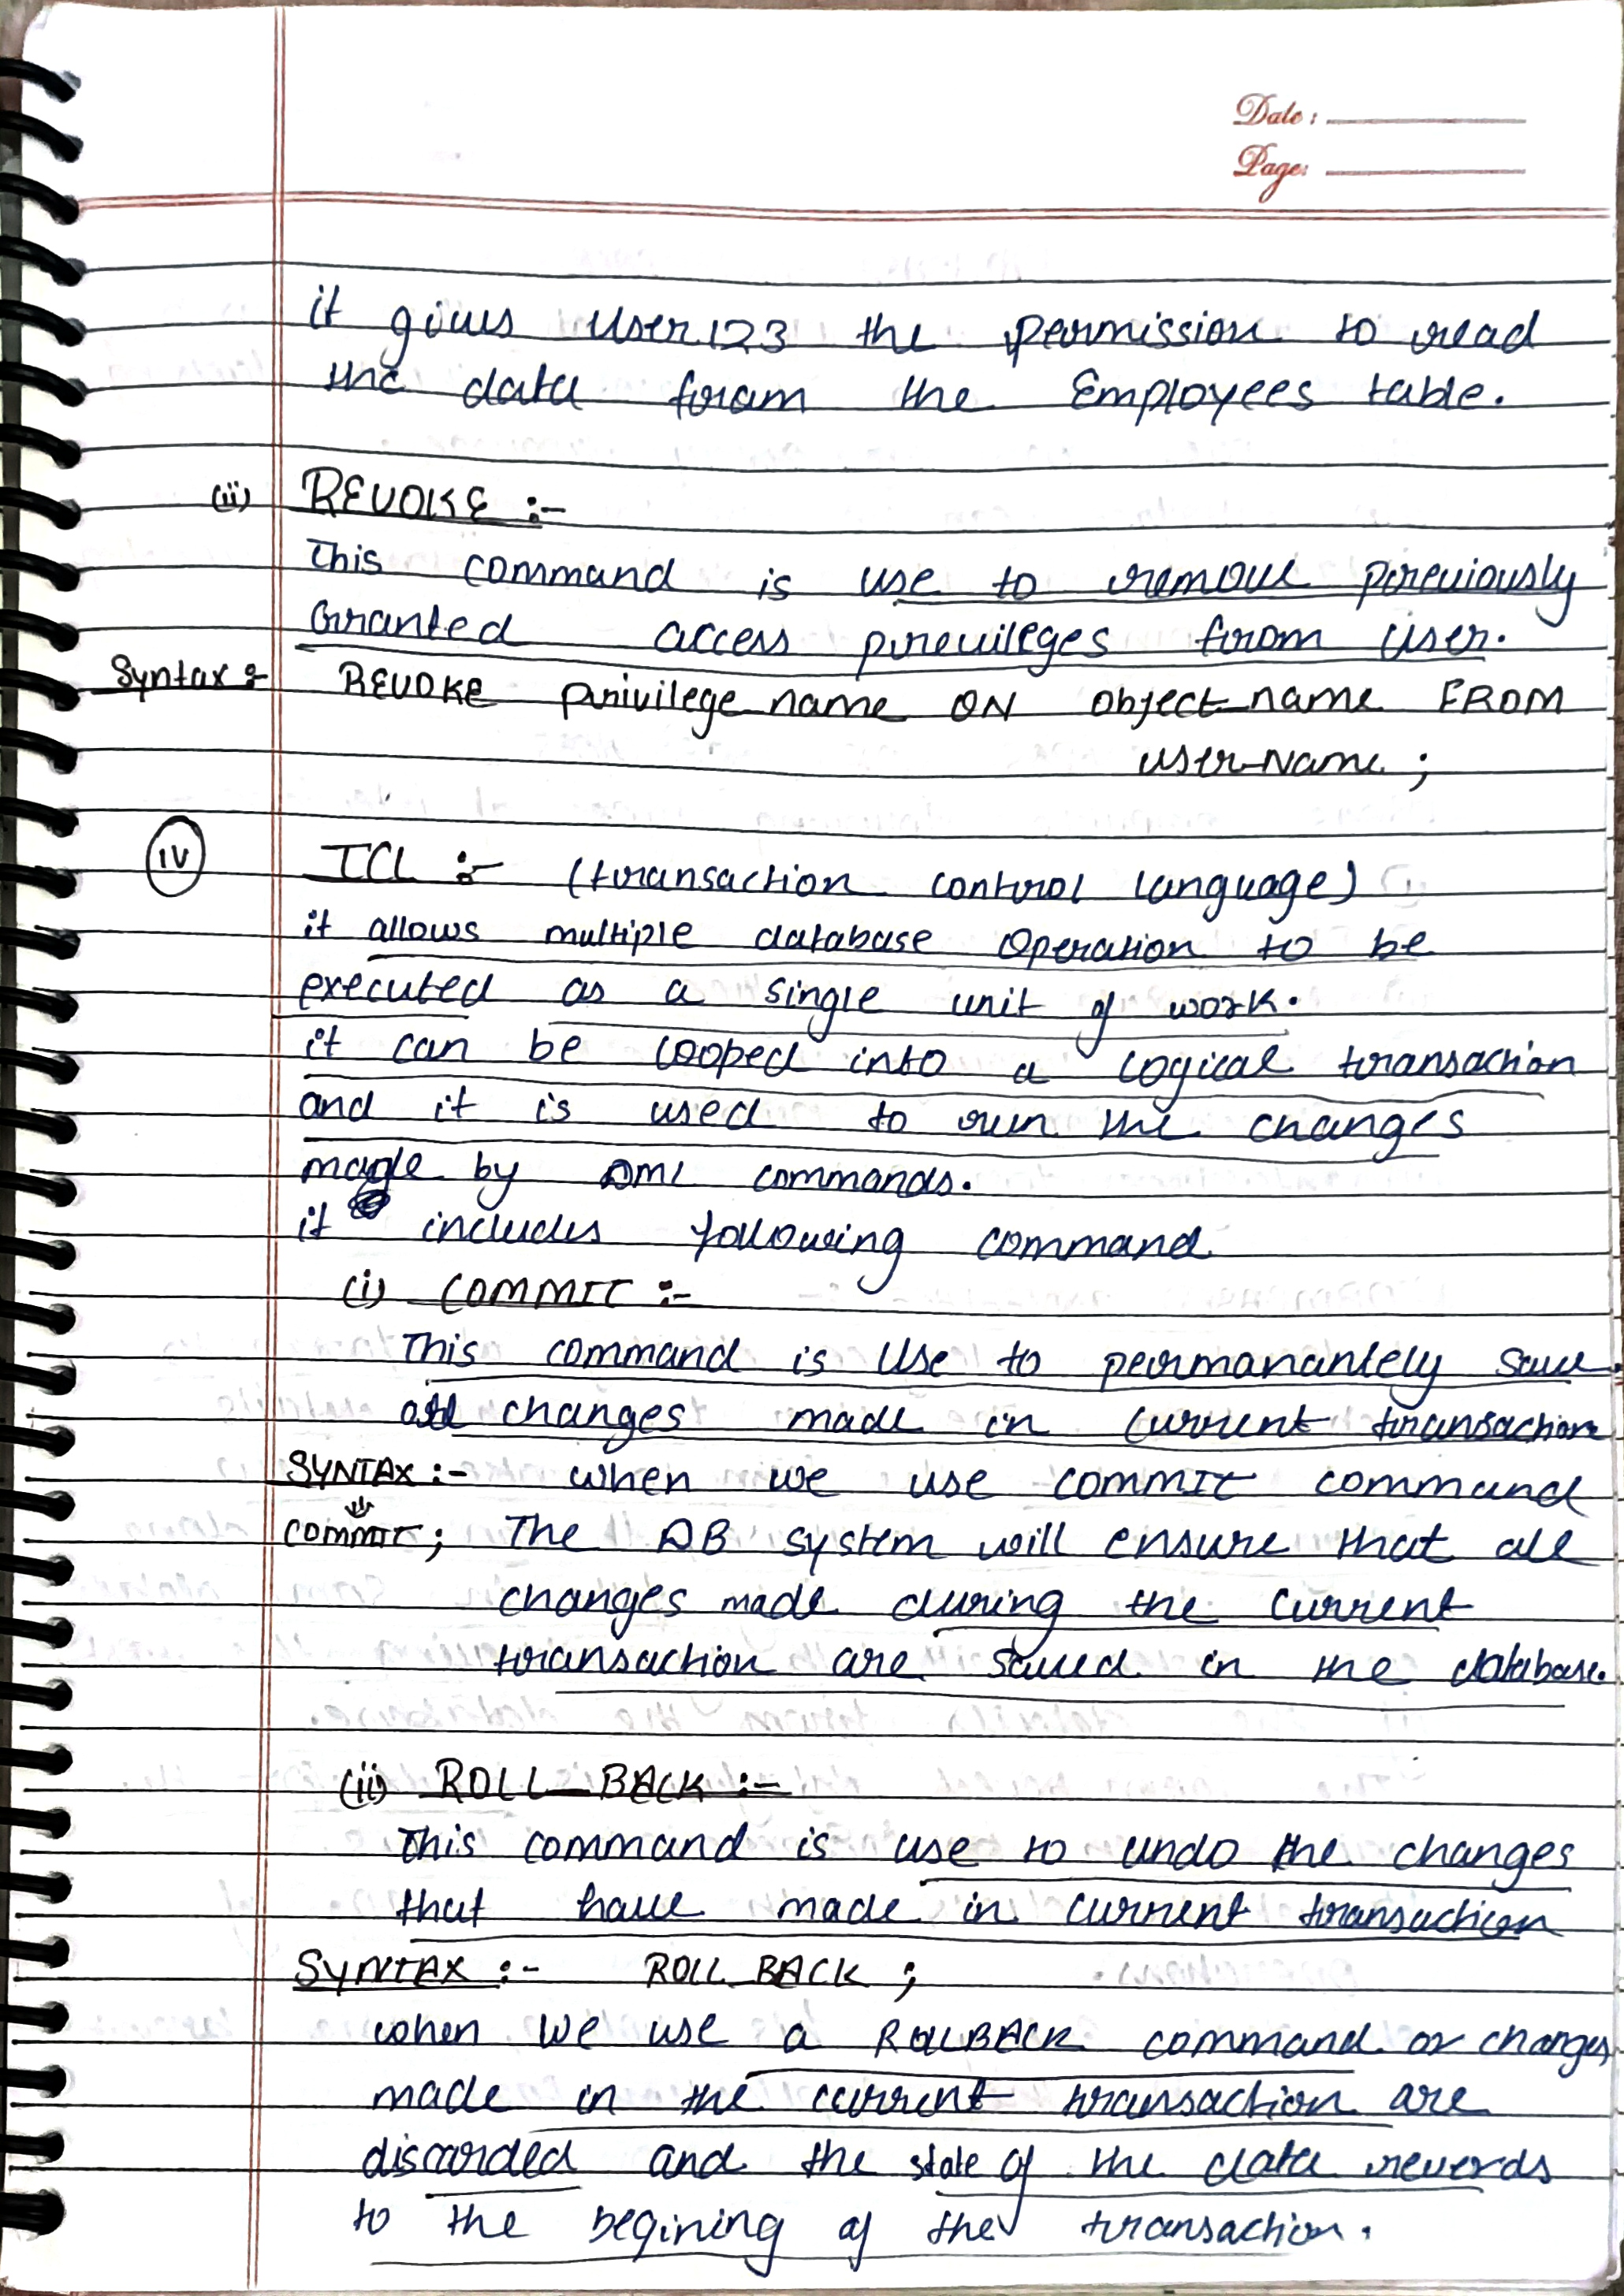 Date :
Page:
it gives user123 the permission to read
the data foram the Employees table.
(ii) REVOKE :-
This command is use to remove previously
Granted access previleges from User.
Syntax :- REVOKE privilege_name ON object_name FROM
user_Name ;
(iv) TCL :- (transaction control language)
it allows multiple database Operation to be
executed as a single unit of work.
it can be looped into a logical transaction
and it is used to run the changes
made by DML commands.
it includes following command
(i) COMMIT :-
This command is Use to permanantely save
all changes made in current transaction
SYNTAX :- when we use COMMIT command
COMMIT; The DB system will ensure that all
changes made during the current
transaction are saved in the database.
(ii) ROLL_BACK :-
This command is use to undo the changes
that have made in current transaction
SYNTAX :- ROLL_BACK ;
when we use a ROLLBACK command or changes
made in the current transaction are
discarded and the state of the data reverds
to the begining of the transaction.